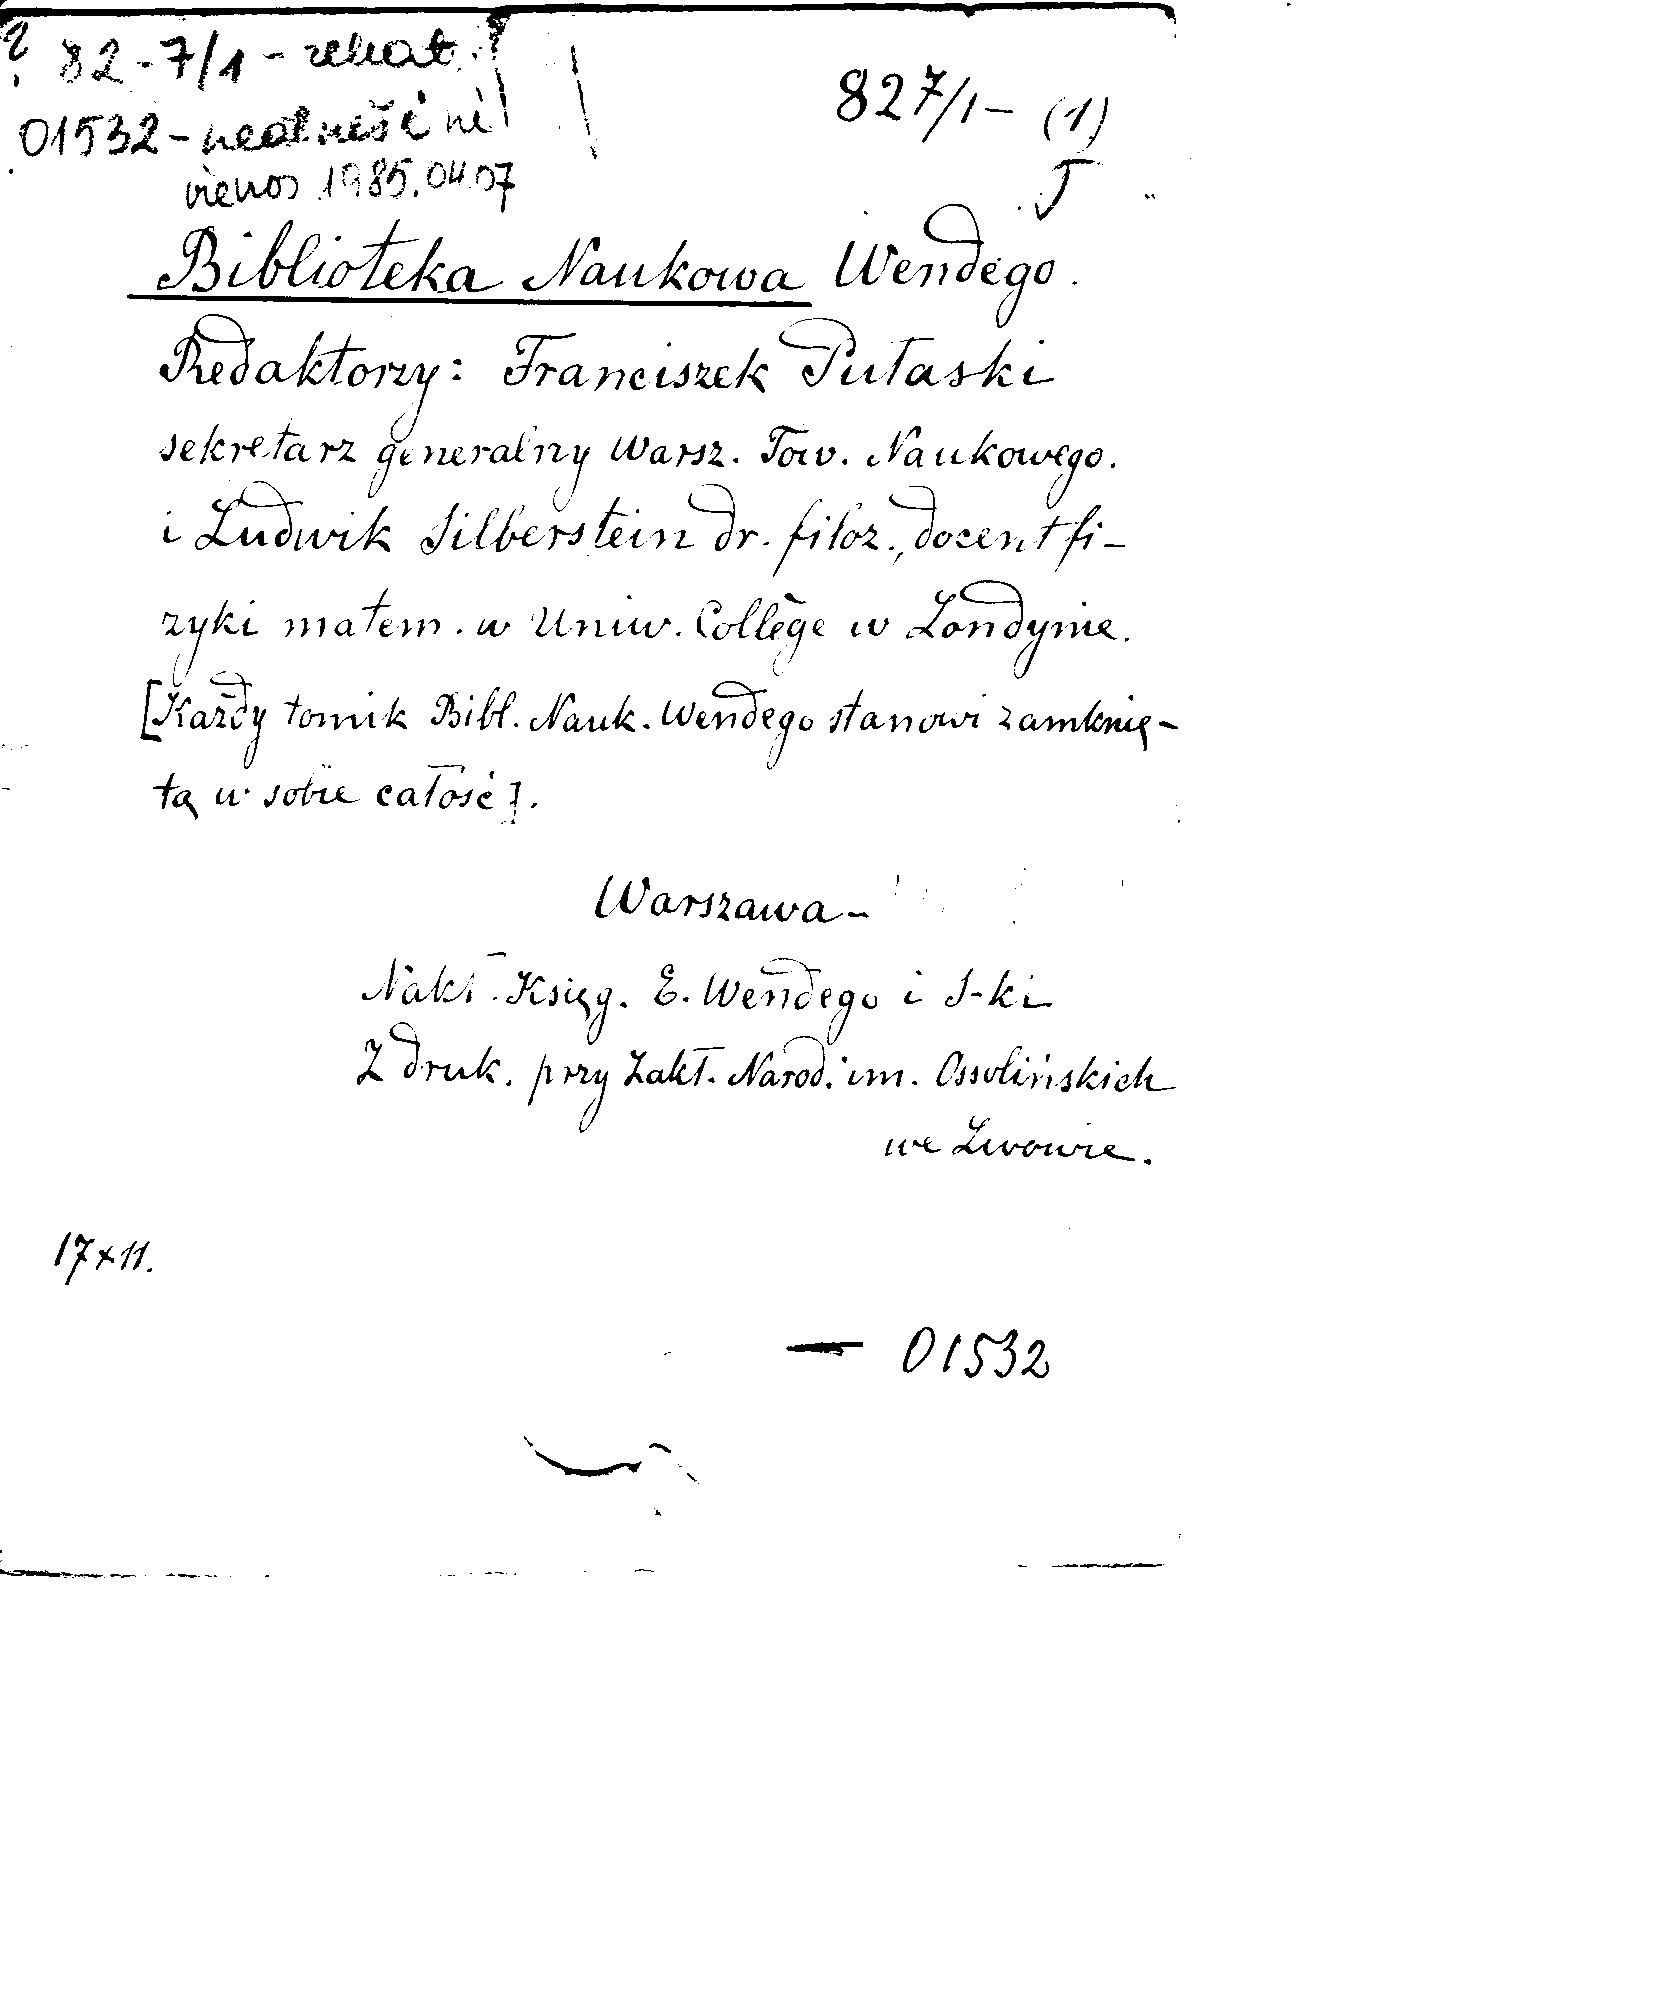 ? 82-7/1 - rekat.
01532 - neatnešė nė
vienos 1985.04.07
827/1 - (1)
J
Biblioteka Naukowa Wendego.
Redaktorzy: Franciszek Pułaski
sekretarz generalny Warsz. Tow. Naukowego.
i Ludwik Silberstein dr. filoz., docent fi-
zyki matem. w Uniw. College w Londynie.
[Każdy tomik Bibl. Nauk. Wendego stanowi zamknię-
tą w sobie całość].
Warszawa -
Nakł. Księg. E. Wendego i S-ki
Z druk. przy Zakł. Narod. im. Ossolińskich
we Lwowie.
17x11.
— 01532